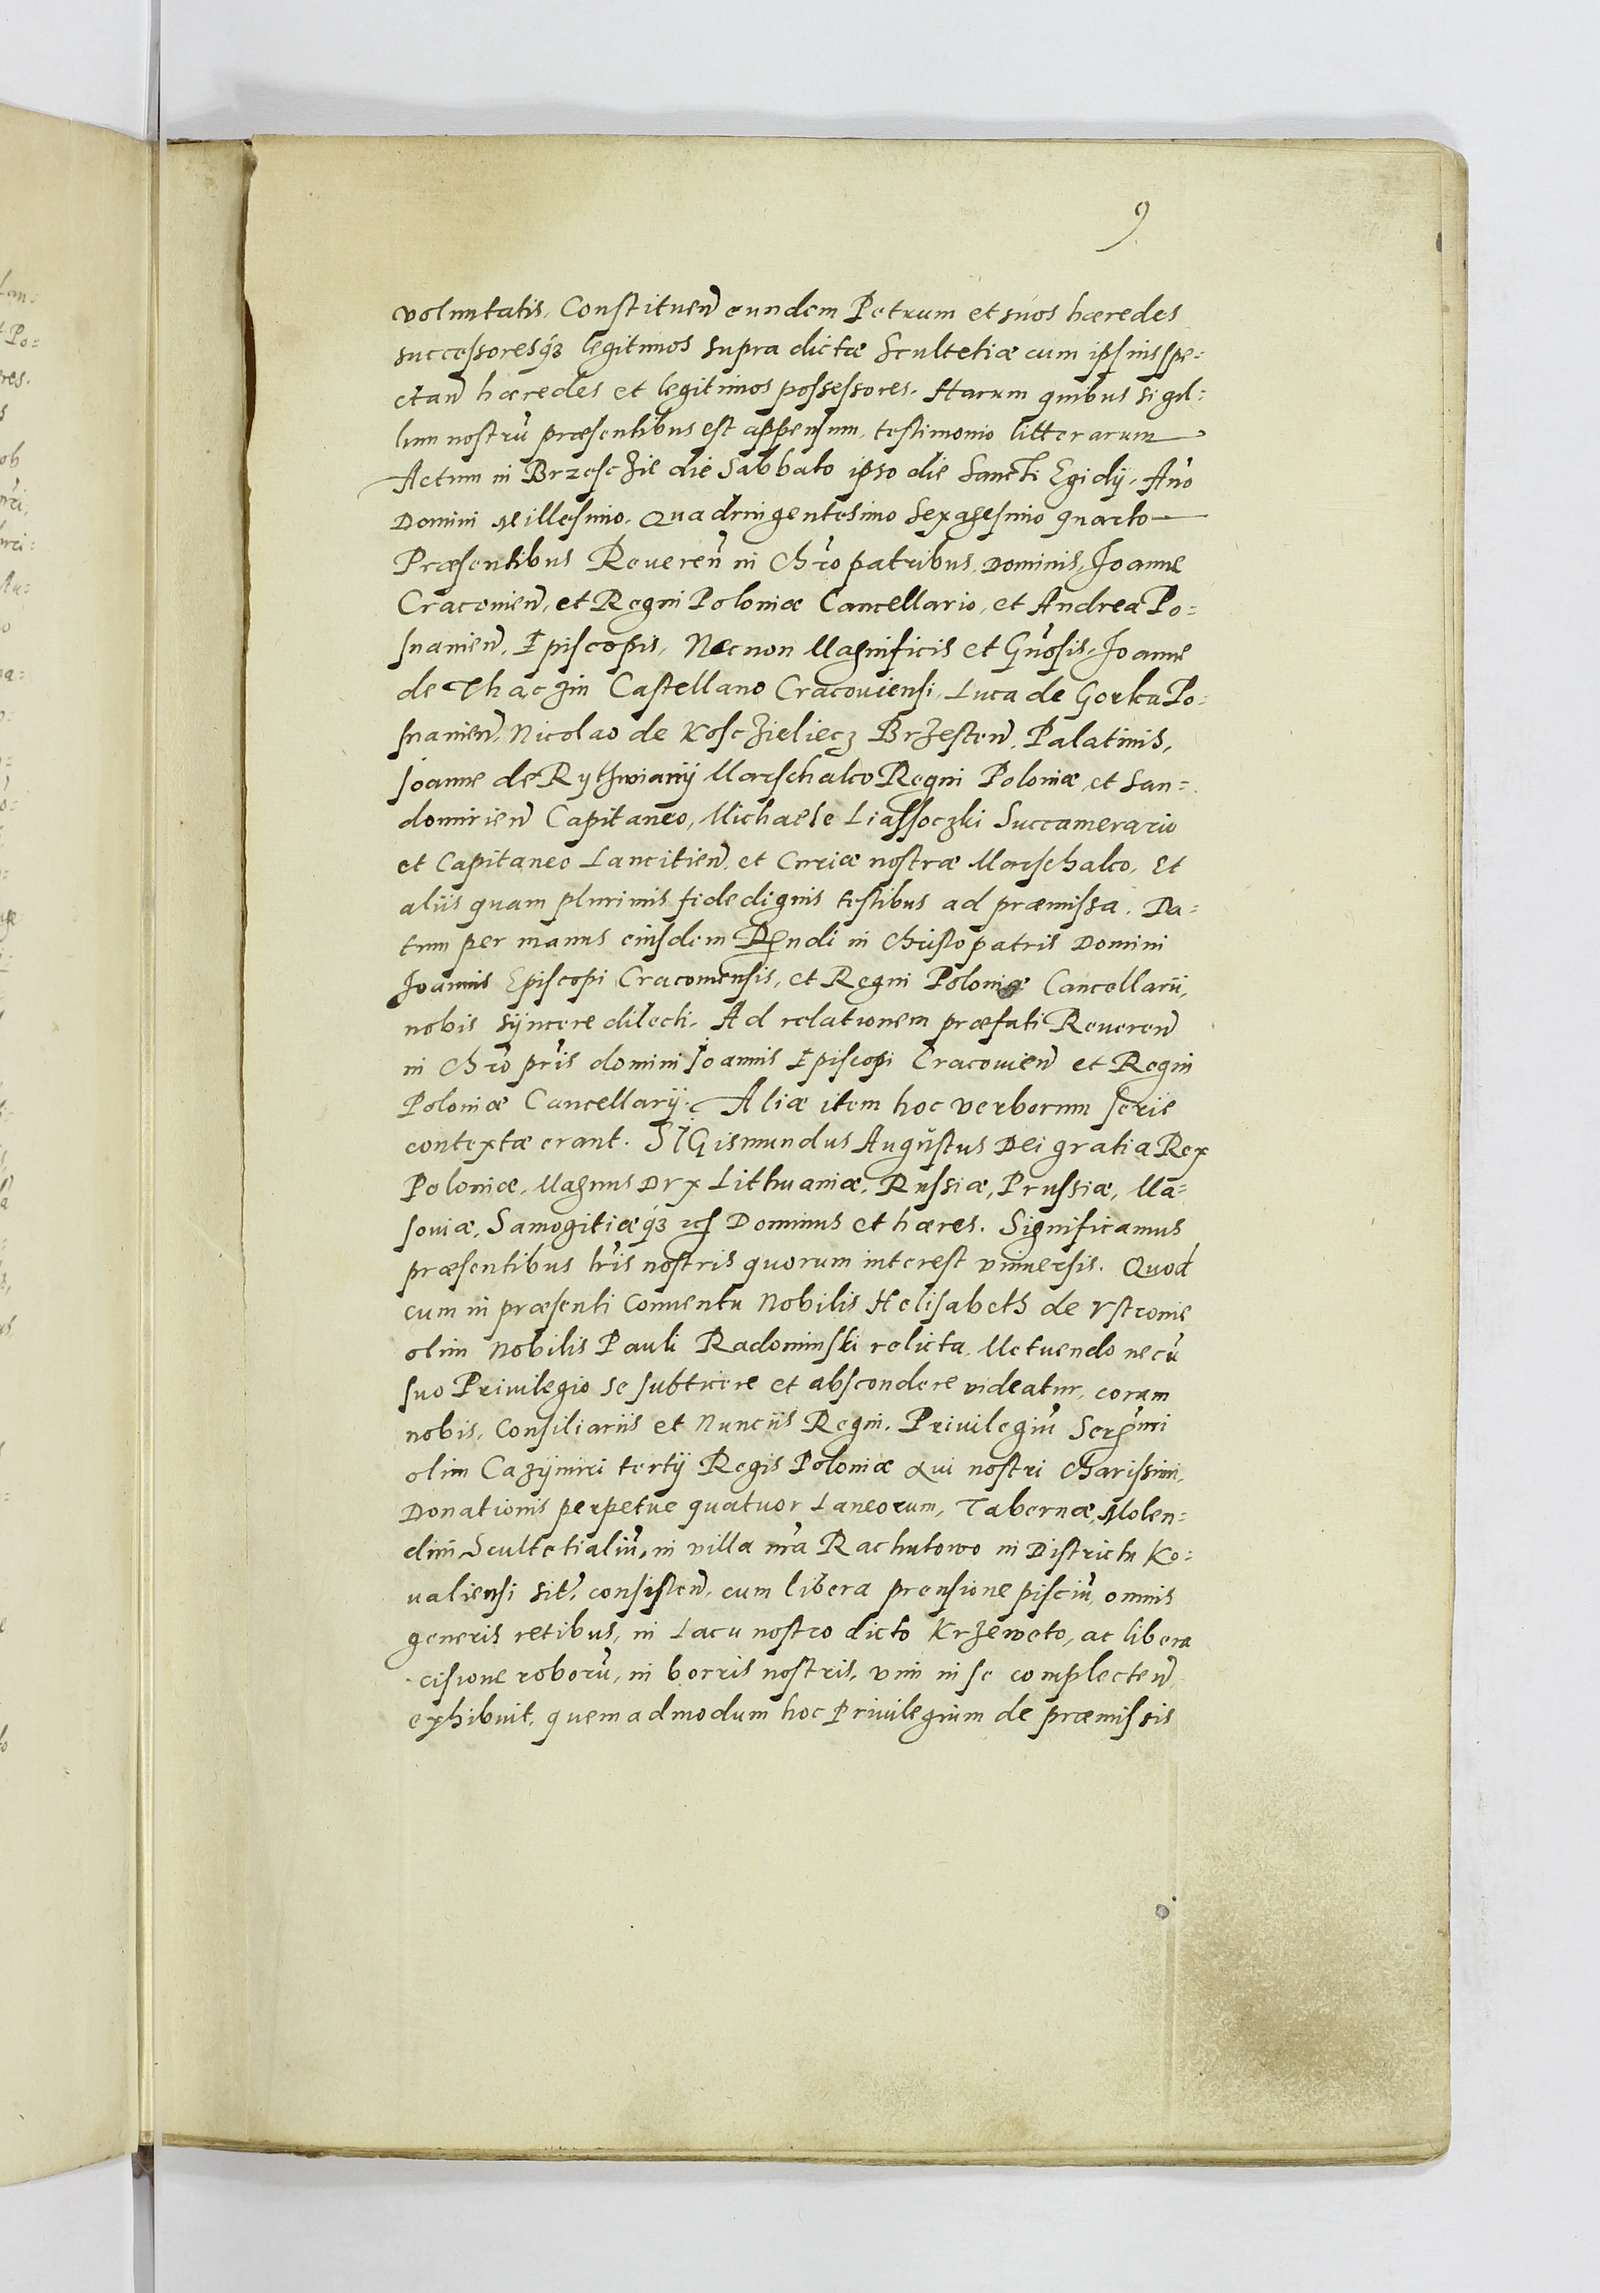 9
voluntatis, Constituen̄ eundem Petrum et suos hæredes
successoresq3 legitimos supra dictæ Scultetiæ cum ipsius spe=
ctan̄ hæredes et legitimos possessores. Harum quibus sigil=
lum nostrū præsentibus est appensum, testimonio litterarum
Actum in Brzesczie die Sabbato ipso die Sancti Egidij, An̄o
Domini Millesimo, Quadringentesimo Sexagesimo quarto
Præsentibus Reueren̄ in Chr̄o patribus, Dominis, Joanne
Cracouien̄, et Regni Poloniæ Cancellario, et Andrea Po=
snanien̄, Episcopis, Necnon Magnificis et Gn̄osis, Joanne
de Thaczin Castellano Cracouiensi, Luca de Gorka Po=
snanien̄, Nicolao de Kosczieliecz Brzesten̄, Palatinis,
Joanne de Rythwiany Marschalco Regni Poloniæ, et San=
domirien̄ Capitaneo, Michaele Liassoczki Succamerario
et Capitaneo Lancitien̄, et Curiæ nostræ Marschalco, Et
aliis quam plurimis fidedignis testibus ad præmissa. Da=
tum per manus eiusdem Rndi in Christo patris Domini
Joannis Episcopi Cracouiensis, et Regni Poloniæ Cancellarii,
nobis syncere dilecti. Ad relationem præfati Reueren̄
in Chr̄o pr̄is domini Joannis Episcopi Cracouien̄ et Regni
Poloniæ Cancellarij. Aliæ item hoc verborum serie
contextæ erant. SIGismundus Augustus Dei gratia Rex
Poloniæ, Magnus Dux Lithuaniæ, Russiæ, Prussiæ, Ma=
souiæ, Samogitiæq3 etc Dominus et hæres. Significamus
præsentibus lr̄is nostris quorum interest vniuersis. Quod
cum in præsenti Conuentu Nobilis Helisabeth de Vstronie
olim Nobilis Pauli Radominski relicta, Metuendo ne cū
suo Priuilegio se subticere et abscondere videatur, coram
nobis, Consiliariis et Nunciis Regni, Priuilegiū Ser̄mi
olim Cazijmiri tertij Regis Poloniæ Aui nostri Charissimi,
Donationis perpetue quatuor Laneorum, Tabernæ, Molen=
dini, Scultetialiū, in villa nr̄a Rachutowo in Districtu Ko=
ualiensi sit̄, consisten̄, cum libera prensione pisciū, omnis
generis retibus, in Lacu nostro dicto Krzeweto, ac libera
cisione roborū, in borris nostris, vim in se complecten̄
exhibuit, quemadmodum hoc Priuilegium de præmissis